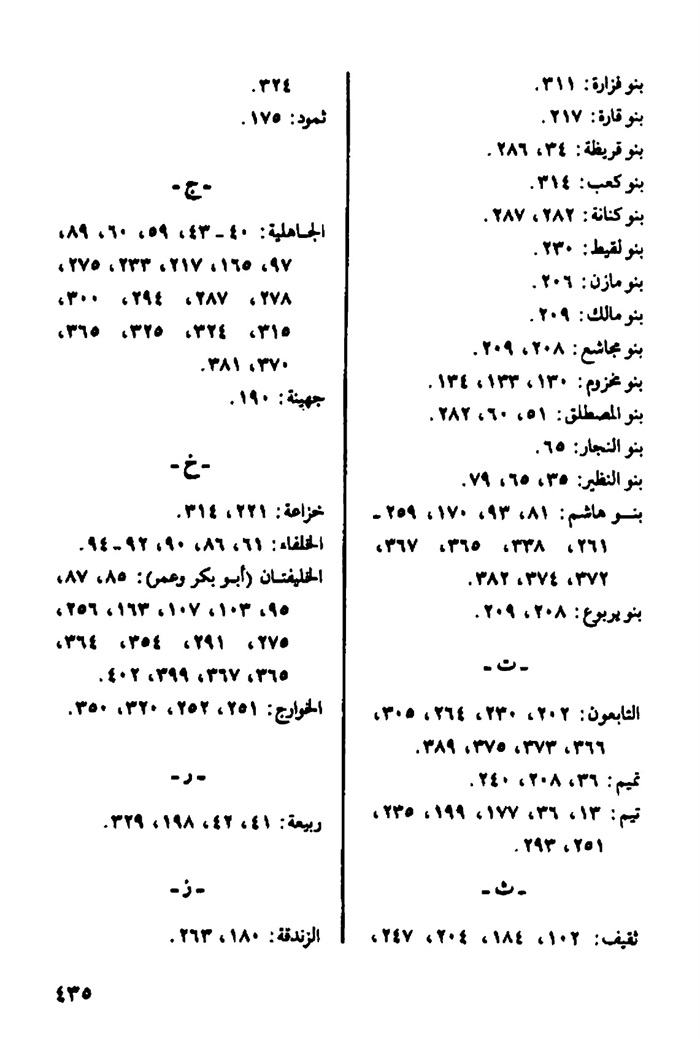 بنو فزارة: ٣١١.
بنو قارة: ٢١٧.
بنو قريظة: ٣٤، ٢٨٦.
بنو كعب: ٣١٤.
بنو كنانة: ٢٨٢، ٢٨٧.
بنو لقيط: ٢٣٠.
بنو مازن: ٢٠٦.
بنو مالك: ٢٠٩.
بنو مجاشع: ٢٠٨، ٢٠٩.
بنو مخزوم: ١٣٠، ١٣٣، ١٣٤.
بنو المصطلق: ٥١، ٦٠، ٢٨٢.
بنو النجار: ٦٥.
بنو النظير: ٣٥، ٦٥، ٧٩.
بنـو هاشم: ٨١، ٩٣، ١٧٠، ٢٥٩ -
٢٦١، ٣٣٨، ٣٦٥، ٣٦٧،
٣٧٢، ٣٧٤، ٣٨٢.
بنو يربوع: ٢٠٨، ٢٠٩.
- ت -
التابعون: ٢٠٢، ٢٣٠، ٢٦٤، ٣٠٥،
٣٦٦، ٣٧٣، ٣٧٥، ٣٨٩.
تميم: ٣٦، ٢٠٨، ٢٤٠.
تيم: ١٣، ٣٦، ١٧٧، ١٩٩، ٢٣٥،
٢٥١، ٢٩٣.
- ث -
ثقيف: ١٠٢، ١٨٤، ٢٠٤، ٢٤٧،
٣٢٤.
ثمود: ١٧٥.
- ج -
الجـاهلية: ٤٠ - ٤٣، ٥٩، ٦٠، ٨٩،
٩٧، ١٦٥، ٢١٧، ٢٣٣، ٢٧٥،
٢٧٨، ٢٨٧، ٢٩٤، ٣٠٠،
٣١٥، ٣٢٤، ٣٢٥، ٣٦٥،
٣٧٠، ٣٨١.
جهينة: ١٩٠.
- خ -
خزاعة: ٢٢١، ٣١٤.
الخلفاء: ٦١، ٨٦، ٩٠، ٩٢ - ٩٤.
الخليفتـان (أبـو بكر وعمر): ٨٥، ٨٧،
٩٥، ١٠٣، ١٠٧، ١٦٣، ٢٥٦،
٢٧٥، ٢٩١، ٣٥٤، ٣٦٤،
٣٦٥، ٣٦٧، ٣٩٩، ٤٠٢.
الخوارج: ٢٥١، ٢٥٢، ٣٢٠، ٣٥٠.
- ر -
ربيعة: ٤١، ٤٢، ١٩٨، ٣٢٩.
- ز -
الزندقة: ١٨٠، ٢٦٣.
٤٣٥